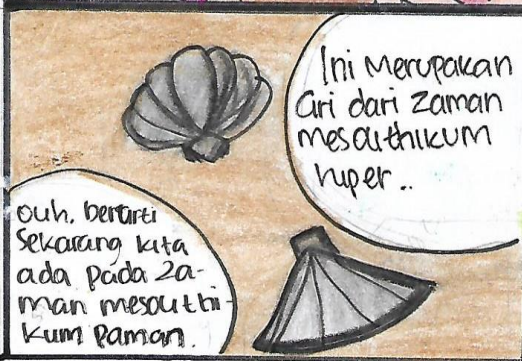 Ini Merupakan
Ciri dari Zaman
mesolithikum
Ouh, berarti
Sekarang kita
ada pada Za-
man mesolithi-
kum Paman.